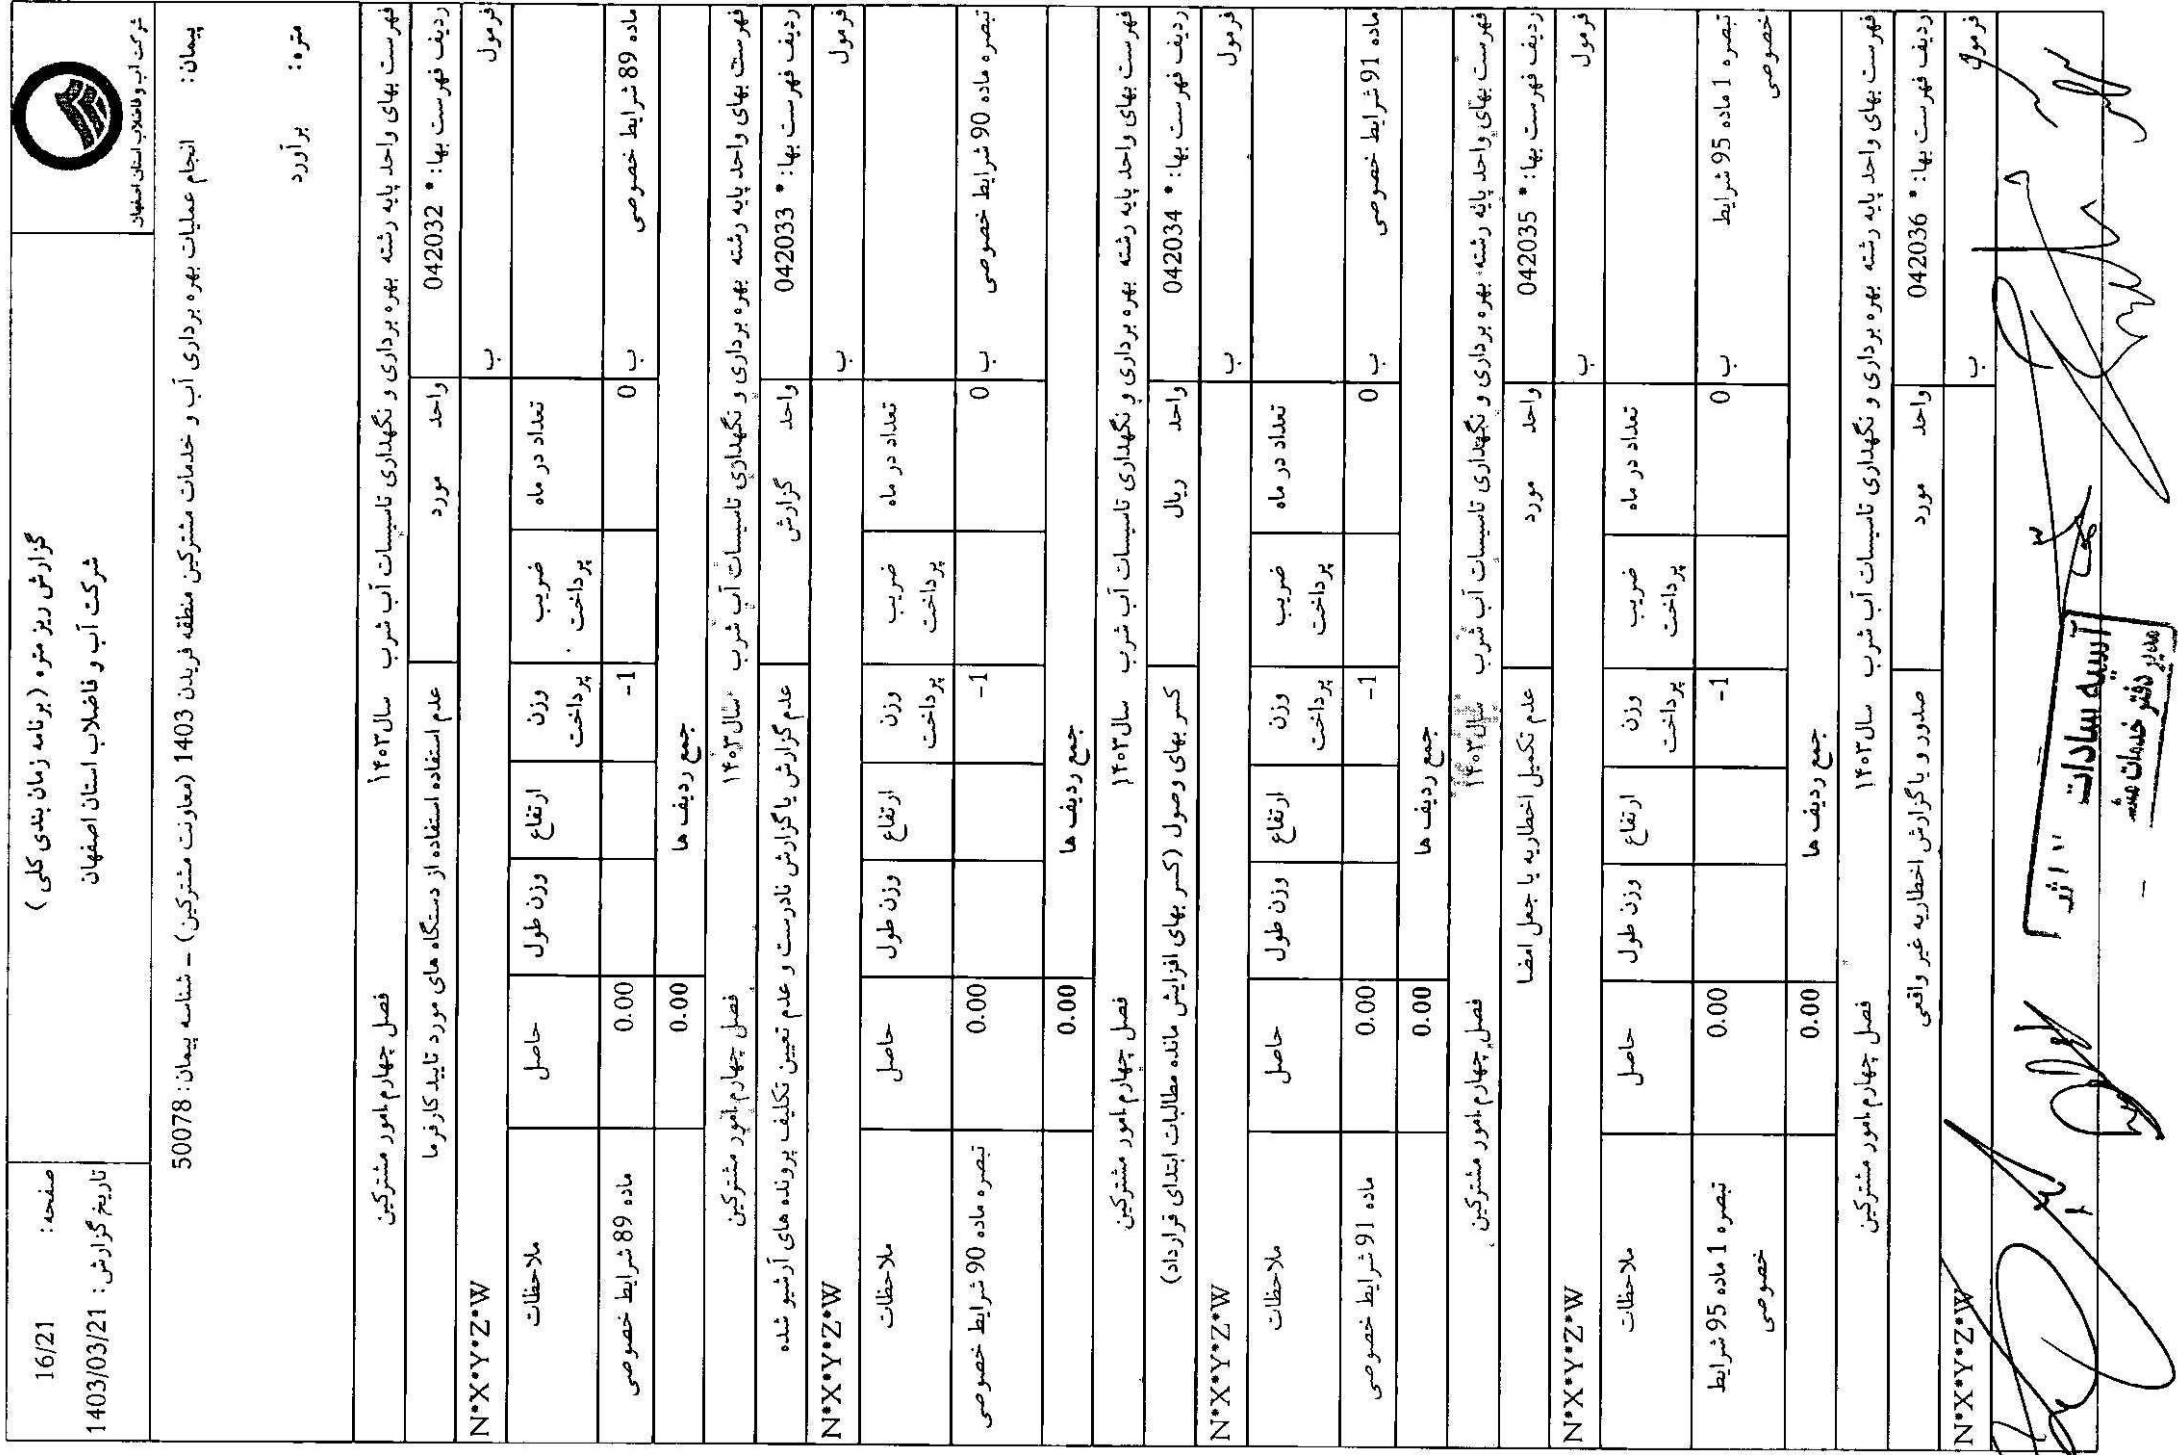 شرکت آب و فاضلاب استان اصفهان
گزارش ریز متره (برنامه زمان بندی کلی)
شرکت آب و فاضلاب استان اصفهان
صفحه: 16/21
تاریخ گزارش: 1403/03/21
پیمان: انجام عملیات بهره برداری آب و خدمات مشترکین منطقه فریدن 1403 (معاونت مشترکین) - شناسه پیمان: 50078
متره: برآورد
فهرست بهای واحد پایه رشته بهره برداری و نگهداری تاسیسات آب شرب سال ۱۴۰۳ فصل چهارم.امور مشترکین:
ردیف فهرست بها: * 042032 واحد مورد عدم استفاده استفاده از دستگاه های مورد تایید کارفرما
فرمول ب N*X*Y*Z*W
تعداد در ماه ضریب پرداخت وزن پرداخت ارتفاع وزن طول حاصل ملاحظات
ماده 89 شرایط خصوصی ب 0 -1 0.00 ماده 89 شرایط خصوصی
جمع ردیف ها 0.00
فهرست بهای واحد پایه رشته بهره برداری و نگهداری تاسیسات آب شرب سال ۱۴۰۳ فصل چهارم.امور مشترکین
ردیف فهرست بها: * 042033 واحد گزارش عدم گزارش یا گزارش نادرست و عدم تعیین تکلیف پرونده های آرشیو شده
فرمول ب N*X*Y*Z*W
تعداد در ماه ضریب پرداخت وزن پرداخت ارتفاع وزن طول حاصل ملاحظات
تبصره ماده 90 شرایط خصوصی ب 0 -1 0.00 تبصره ماده 90 شرایط خصوصی
جمع ردیف ها 0.00
فهرست بهای واحد پایه رشته بهره برداری و نگهداری تاسیسات آب شرب سال ۱۴۰۳ فصل چهارم.امور مشترکین
ردیف فهرست بها: * 042034 واحد ریال کسر بهای وصول (کسر بهای افزایش مانده مطالبات ابتدای قرارداد)
فرمول ب N*X*Y*Z*W
تعداد در ماه ضریب پرداخت وزن پرداخت ارتفاع وزن طول حاصل ملاحظات
ماده 91 شرایط خصوصی ب 0 -1 0.00 ماده 91 شرایط خصوصی
جمع ردیف ها 0.00
فهرست بهای واحد پایه رشته بهره برداری و نگهداری تاسیسات آب شرب سال ۱۴۰۳ فصل چهارم.امور مشترکین
ردیف فهرست بها: * 042035 واحد مورد عدم تکمیل اخطاریه یا جعل امضا
فرمول ب N*X*Y*Z*W
تعداد در ماه ضریب پرداخت وزن پرداخت ارتفاع وزن طول حاصل ملاحظات
تبصره 1 ماده 95 شرایط خصوصی ب 0 -1 0.00 تبصره 1 ماده 95 شرایط خصوصی
جمع ردیف ها 0.00
فهرست بهای واحد پایه رشته بهره برداری و نگهداری تاسیسات آب شرب سال ۱۴۰۳ فصل چهارم.امور مشترکین
ردیف فهرست بها: * 042036 واحد مورد صدور و یا گزارش اخطاریه غیر واقعی
فرمول ب N*X*Y*Z*W
آسیه سادات
مدیر دفتر خدمات